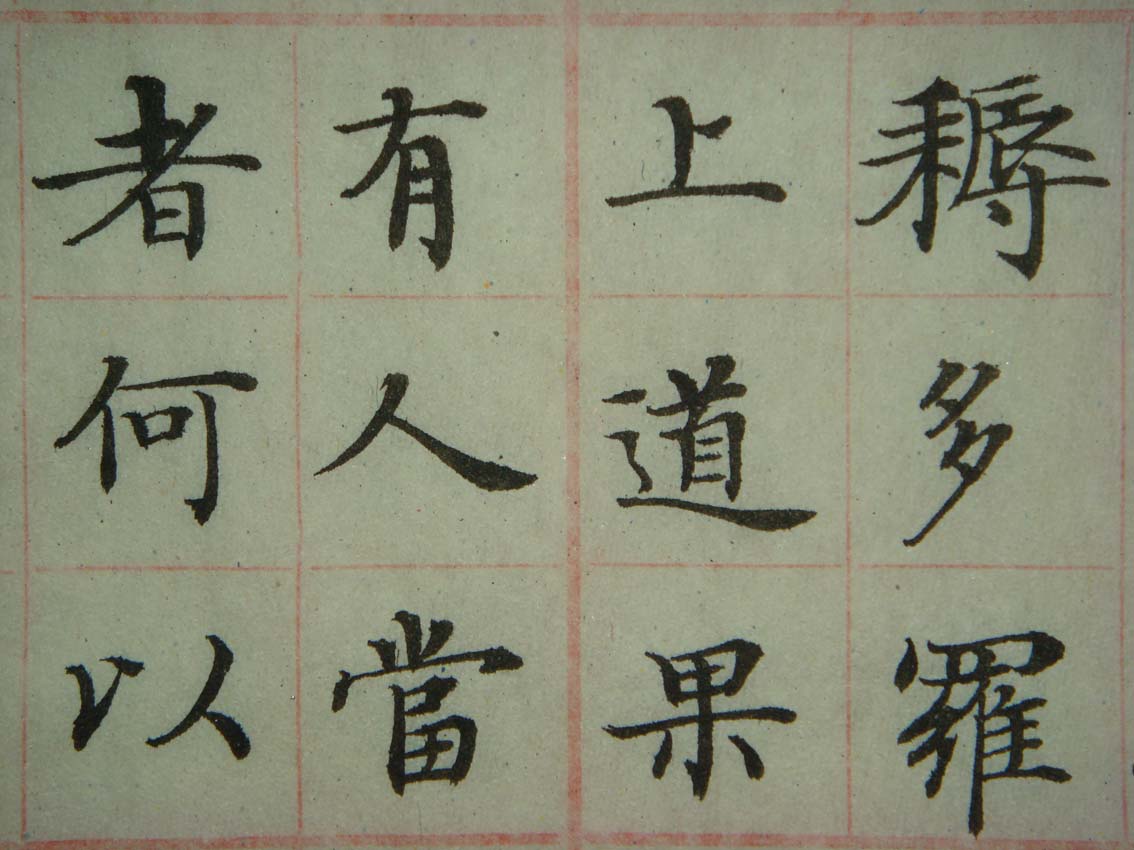 耨多羅
上道果
有人當
者何以